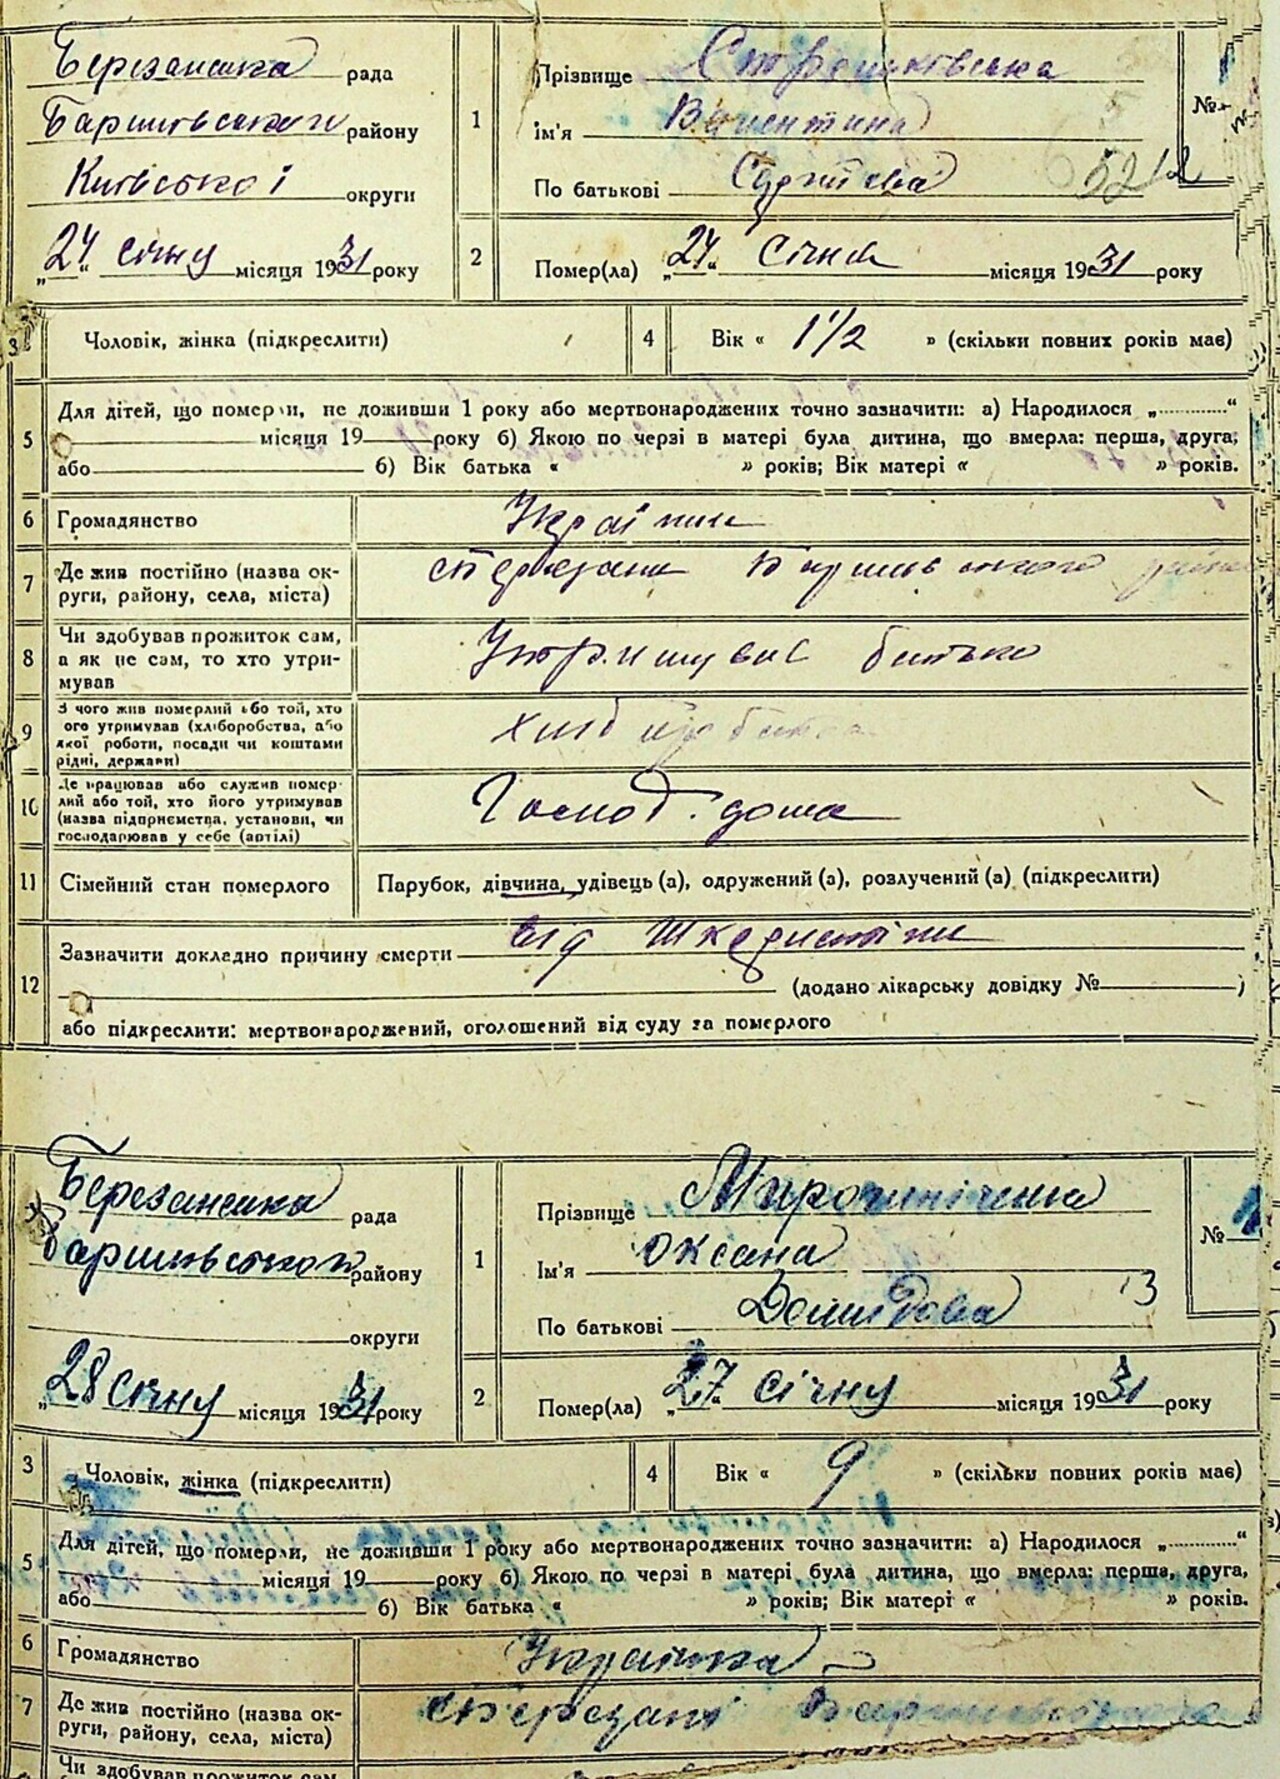 Березанська рада
району
Київської округи
„24“ січну місяця 1931 року
1
Прізвище
Ім'я Валентина
По батькові
№
5212
2
Помер(ла) „24“ січня місяця 1931 року
3
Чоловік, жінка (підкреслити)
4
Вік « 1 1/2 » (скільки повних років має)
5
Для дітей, що померли, не доживши 1 року або мертвонароджених точно зазначити: а) Народилося „..........“
місяця 19 року б) Якою по черзі в матері була дитина, що вмерла: перша, друга,
або б) Вік батька « » років; Вік матері « » років.
6
Громадянство
7
Де жив постійно (назва ок-
руги, району, села, міста)
8
Чи здобував прожиток сам,
а як не сам, то хто утри-
мував
батько
9
З чого жив померлий або той, хто
ого утримував (хліборобства, або
якої роботи, посади чи коштами
рідні, держави)
10
Де працював або служив помер-
лий або той, хто його утримував
(назва підприємства, установи, чи
господарював у себе (артілі)
Господ. дома
11
Сімейний стан померлого
Парубок, дівчина, удівець (а), одружений (а), розлучений (а) (підкреслити)
12
Зазначити докладно причину смерти від
(додано лікарську довідку № )
або підкреслити: мертвонароджений, оголошений від суду за померлого
Березанська рада
району
округи
„28 січну місяця 1931 року
1
Прізвище
Ім'я Оксана
По батькові Демидова
13
№ 1
2
Помер(ла) „27“ січну місяця 1931 року
3
Чоловік, жінка (підкреслити)
4
Вік « 9 » (скільки повних років має)
5
Для дітей, що померли, не доживши 1 року або мертвонароджених точно зазначити: а) Народилося „..........“
місяця 19 року б) Якою по черзі в матері була дитина, що вмерла: перша, друга,
або б) Вік батька « » років; Вік матері « » років.
6
Громадянство Українка
7
Де жив постійно (назва ок-
руги, району, села, міста)
Чи здобував прожиток сам,